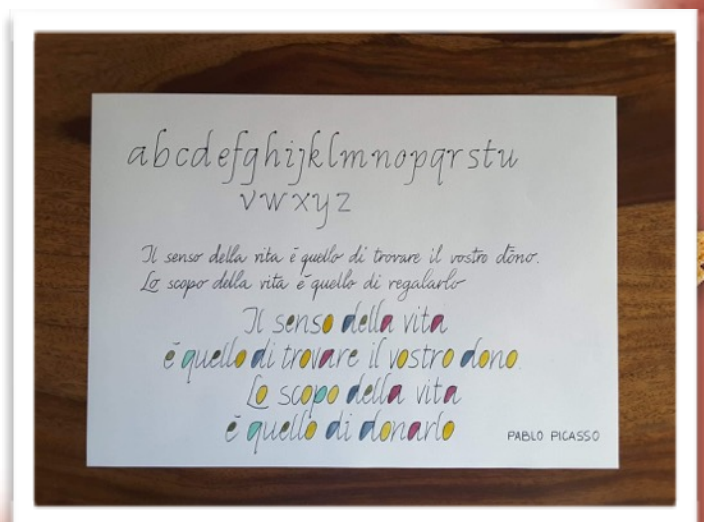 abcdefghijklmnopqrstu
vwxyz
Il senso della vita è quello di trovare il vostro dono.
Lo scopo della vita è quello di regalarlo
Il senso della vita
è quello di trovare il vostro dono.
Lo scopo della vita
è quello di donarlo
PABLO PICASSO